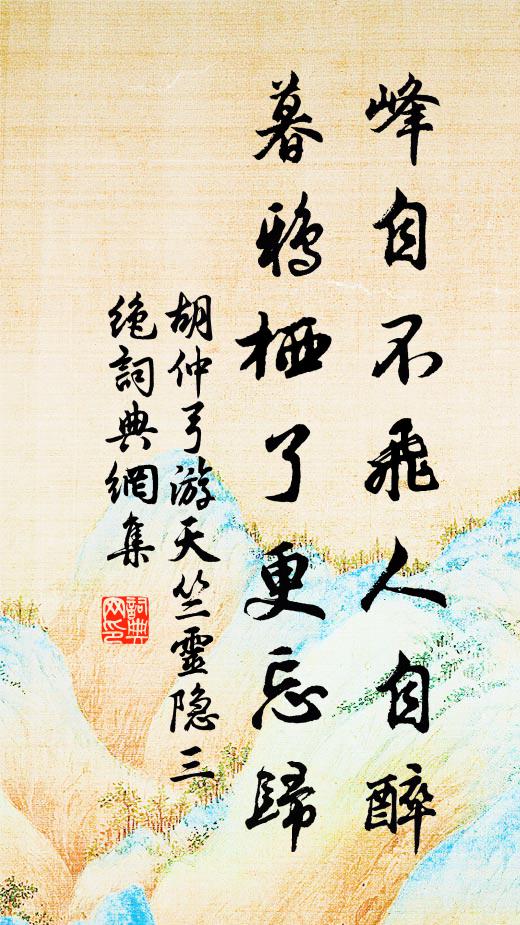 峰自不飛人自醉
暮鴉栖了更忘歸
胡仲弓游天竺靈隐三
绝詞典網集
詞典
网印